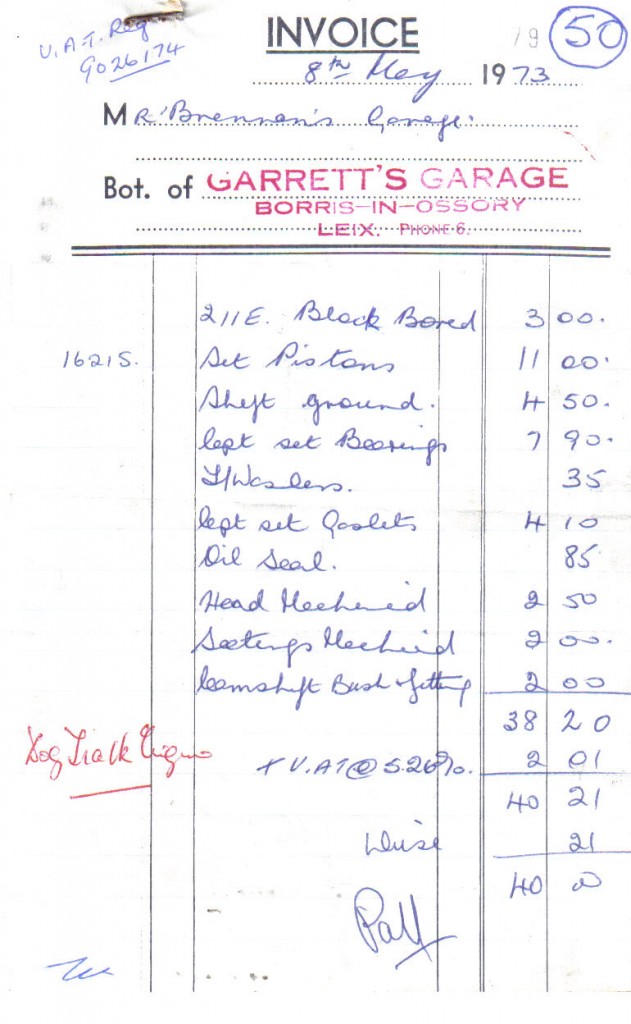 V.A.T. Reg
9026174
INVOICE
19 50
8th May 1973
MR Brennan's Garage.
Bot. of GARRETT'S GARAGE
BORRIS-IN-OSSORY
LEIX. PHONE 6.
211E. Block Bored 3 00.
1621S. Set Pistons 11 00.
Shaft ground. 4 50.
Cept set Bearings 7 90.
T/Washers. 35
Cept set Gaskets 4 10
Oil Seal. 85
Head Mechanid 2 50
Seetings Mechnid 2 00.
Camshaft Bush & fitting 2 00
38 20
Dog Track Engine
+ V.A.T @ 5.26%. 2 01
40 21
21
40 00